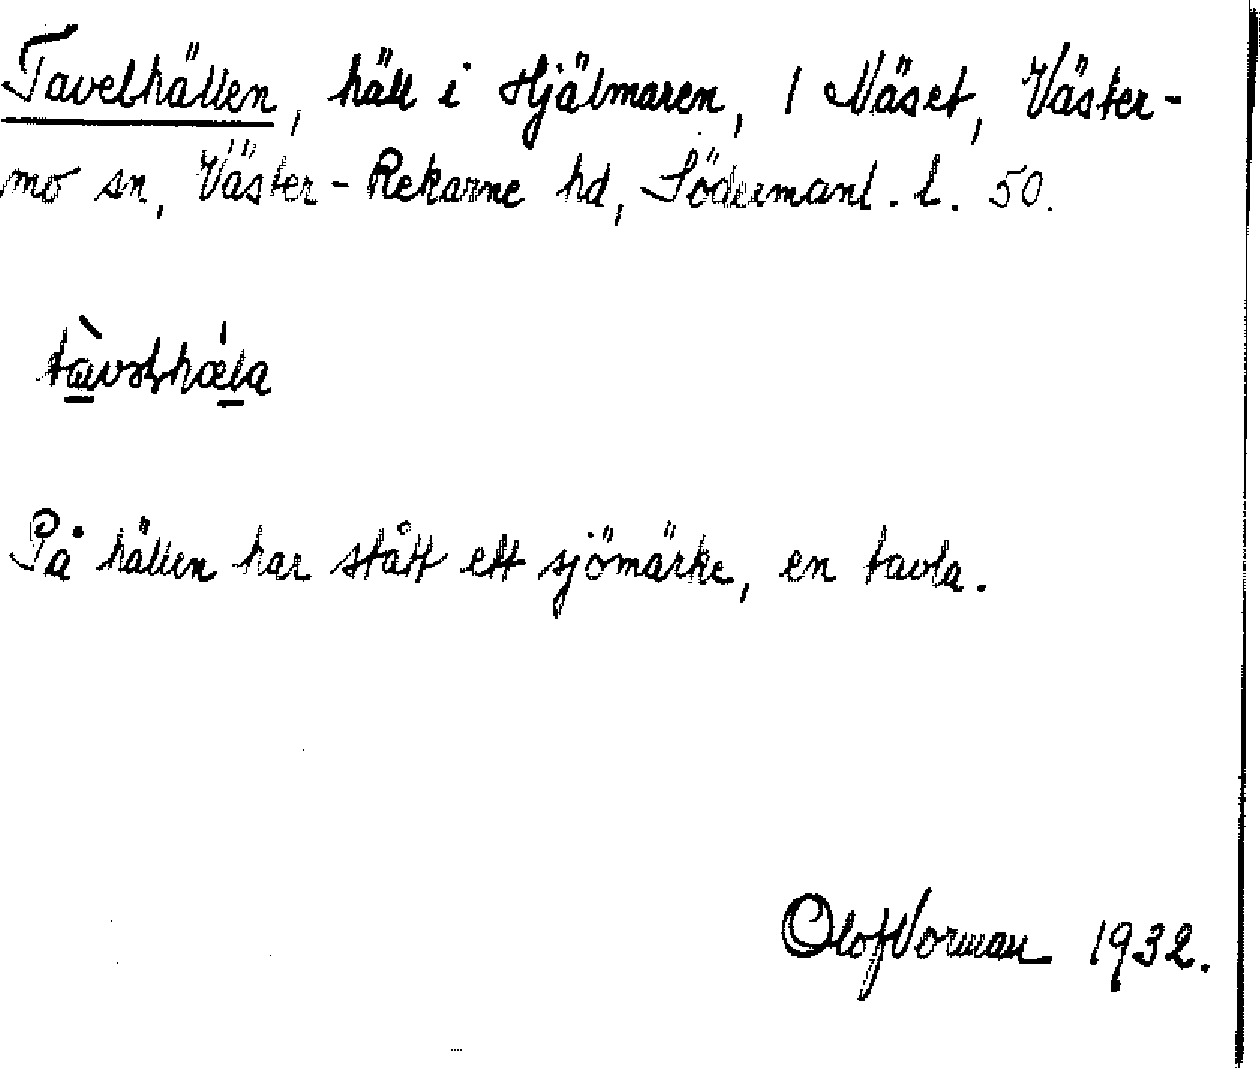 Tavelhällen, häll i Hjälmaren, 1 Näset, Väster-
mo sn, Väster-Rekarne hd, Södermanl. l. 50.
På hällen har stått ett sjömärke, en tavla.
Olof Norman 1932.